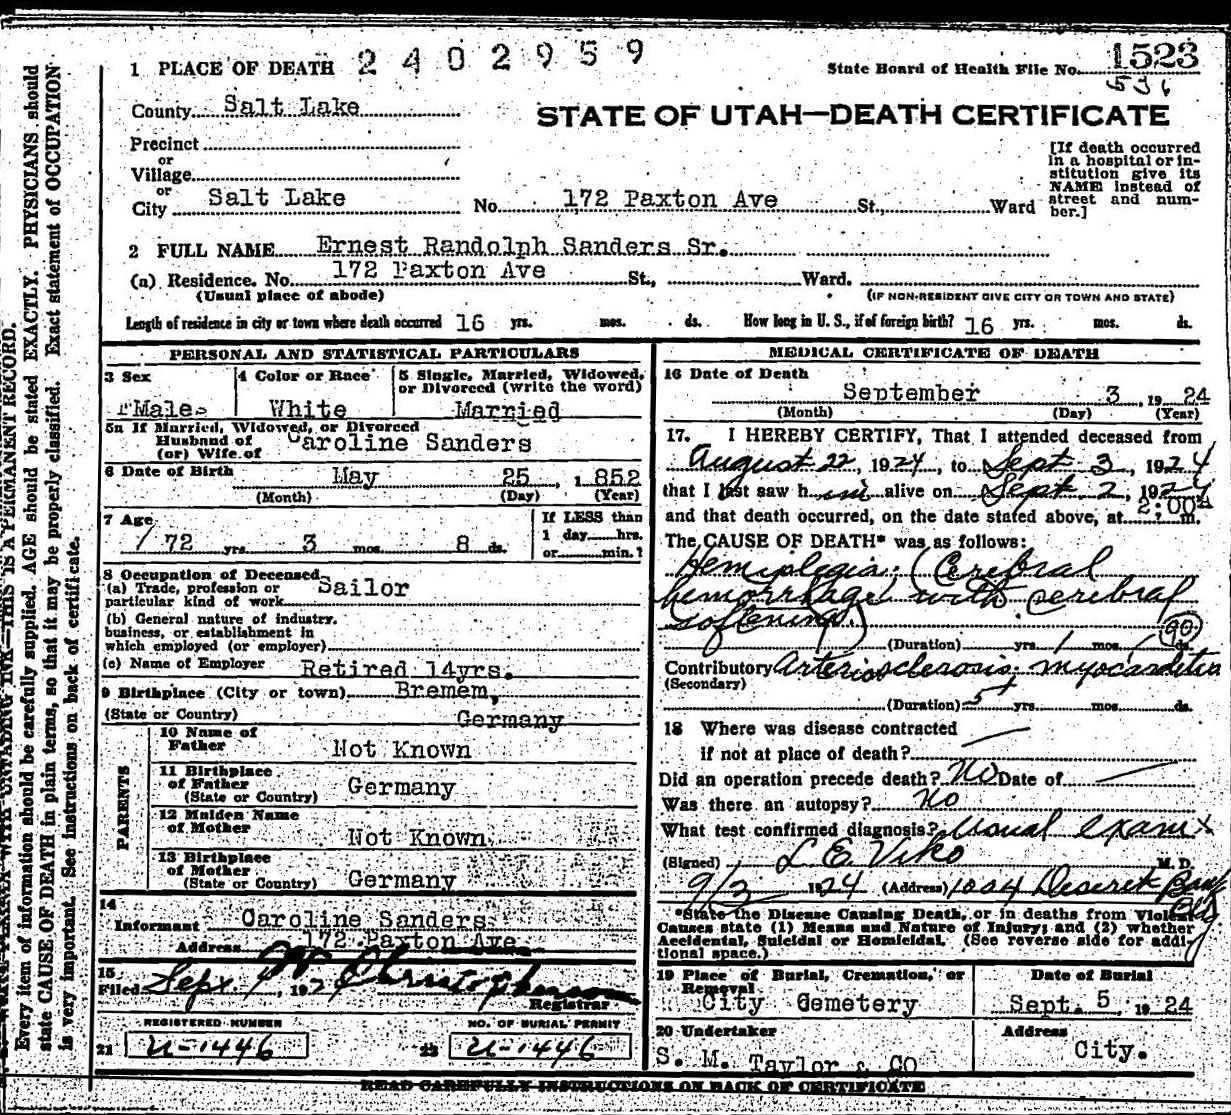 1 PLACE OF DEATH 2402959
State Board of Health File No. 1523
536
County Salt Lake
STATE OF UTAH—DEATH CERTIFICATE
Precinct
or
Village
or
City Salt Lake No. 172 Paxton Ave St., Ward
[If death occurred
in a hospital or in-
stitution give its
NAME instead of
street and num-
ber.]
2 FULL NAME Ernest Randolph Sanders Sr.
(a) Residence. No. 172 Paxton Ave St., Ward.
(Usual place of abode) (IF NON-RESIDENT GIVE CITY OR TOWN AND STATE)
Length of residence in city or town where death occurred 16 yrs. mos. ds. How long in U. S., if of foreign birth? 16 yrs. mos. ds.
PERSONAL AND STATISTICAL PARTICULARS
3 Sex Male
4 Color or Race White
5 Single, Married, Widowed,
or Divorced (write the word)
Married
5a If Married, Widowed, or Divorced
Husband of
(or) Wife of Caroline Sanders
6 Date of Birth May 25, 1852
(Month) (Day) (Year)
7 Age 72 yrs. 3 mos. 8 ds.
If LESS than
1 day hrs.
or min.?
8 Occupation of Deceased
(a) Trade, profession or
particular kind of work Sailor
(b) General nature of industry,
business, or establishment in
which employed (or employer)
(c) Name of Employer Retired 14yrs.
9 Birthplace (City or town) Bremem,
(State or Country) Germany
PARENTS
10 Name of
Father Not Known
11 Birthplace
of Father
(State or Country) Germany
12 Maiden Name
of Mother Not Known
13 Birthplace
of Mother
(State or Country) Germany
14
Informant Caroline Sanders
Address 172 Paxton Ave
15
Filed Sept 1924 Christopherson
Registrar
REGISTERED NUMBER
21 U-1446
NO. OF BURIAL PERMIT
22 U-1446
MEDICAL CERTIFICATE OF DEATH
16 Date of Death
September 3, 1924
(Month) (Day) (Year)
17. I HEREBY CERTIFY, That I attended deceased from
August 22, 1924, to Sept 3, 1924
that I last saw him alive on Sept 2, 1924
and that death occurred, on the date stated above, at 2:00 A m.
The CAUSE OF DEATH* was as follows:
Hemiplegia; (Cerebral
hemorrhage with cerebral
softening.)
(Duration) yrs. 1 mos. ds. 90
Contributory Arteriosclerosis; myocarditis
(Secondary)
(Duration) 5+ yrs. mos. ds.
18 Where was disease contracted
if not at place of death?
Did an operation precede death? No Date of
Was there an autopsy? No
What test confirmed diagnosis? Usual exam
(Signed) L E Viko M. D.
9/3 1924 (Address) 1004 Deseret Bank
Bldg
*State the Disease Causing Death, or in deaths from Violent
Causes state (1) Means and Nature of Injury; and (2) whether
Accidental, Suicidal or Homicidal. (See reverse side for addi-
tional space.)
19 Place of Burial, Cremation, or
Removal
City Cemetery
Date of Burial
Sept. 5, 1924
20 Undertaker
S. M. Taylor & CO
Address
City.
READ CAREFULLY INSTRUCTIONS ON BACK OF CERTIFICATE
THIS IS A PERMANENT RECORD.
Every item of information should be carefully supplied. AGE should be stated EXACTLY. PHYSICIANS should
state CAUSE OF DEATH in plain terms, so that it may be properly classified. Exact statement of OCCUPATION
is very important. See instructions on back of certificate.